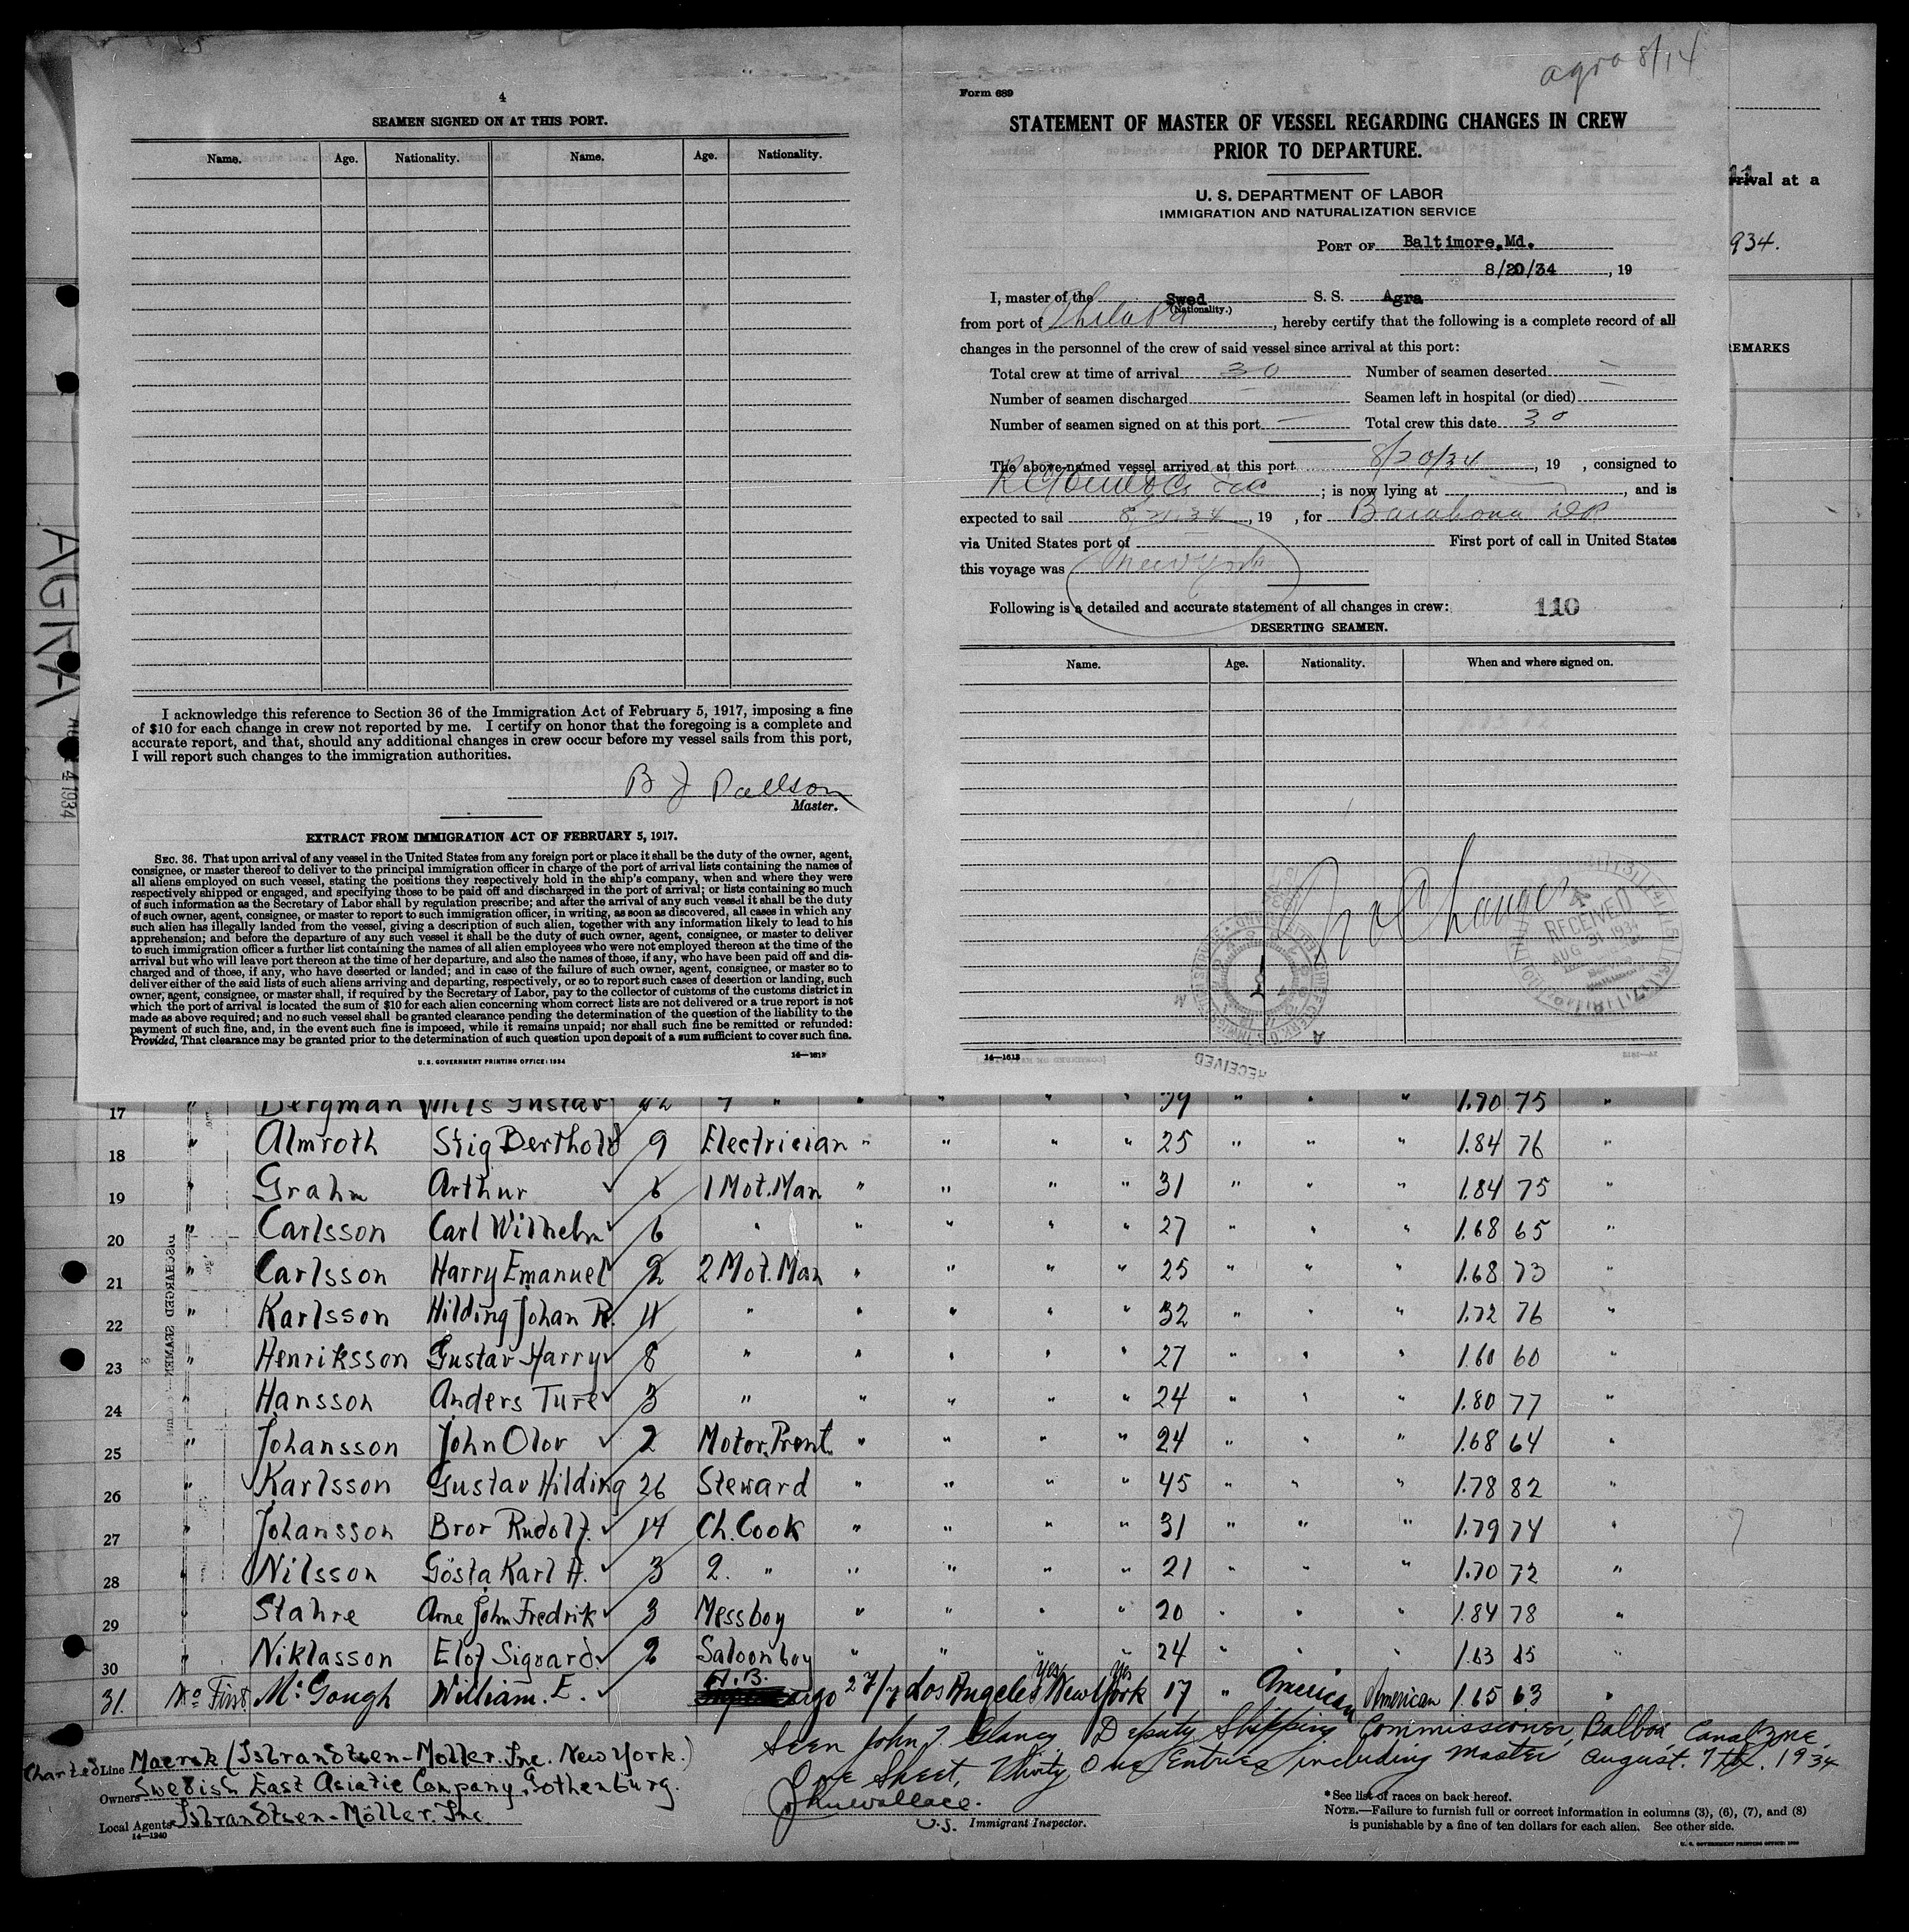 4
SEAMEN SIGNED ON AT THIS PORT.
Name. Age. Nationality. Name. Age. Nationality.
I acknowledge this reference to Section 36 of the Immigration Act of February 5, 1917, imposing a fine
of $10 for each change in crew not reported by me. I certify on honor that the foregoing is a complete and
accurate report, and that, should any additional changes in crew occur before my vessel sails from this port,
I will report such changes to the immigration authorities.
B J Paellson
Master.
EXTRACT FROM IMMIGRATION ACT OF FEBRUARY 5, 1917.
SEC. 36. That upon arrival of any vessel in the United States from any foreign port or place it shall be the duty of the owner, agent,
consignee, or master thereof to deliver to the principal immigration officer in charge of the port of arrival lists containing the names of
all aliens employed on such vessel, stating the positions they respectively hold in the ship's company, when and where they were
respectively shipped or engaged, and specifying those to be paid off and discharged in the port of arrival; or lists containing so much
of such information as the Secretary of Labor shall by regulation prescribe; and after the arrival of any such vessel it shall be the duty
of such owner, agent, consignee, or master to report to such immigration officer, in writing, as soon as discovered, all cases in which any
such alien has illegally landed from the vessel, giving a description of such alien, together with any information likely to lead to his
apprehension; and before the departure of any such vessel it shall be the duty of such owner, agent, consignee, or master to deliver
to such immigration officer a further list containing the names of all alien employees who were not employed thereon at the time of the
arrival but who will leave port thereon at the time of her departure, and also the names of those, if any, who have been paid off and dis-
charged and of those, if any, who have deserted or landed; and in case of the failure of such owner, agent, consignee, or master so to
deliver either of the said lists of such aliens arriving and departing, respectively, or so to report such cases of desertion or landing, such
owner, agent, consignee, or master shall, if required by the Secretary of Labor, pay to the collector of customs of the customs district in
which the port of arrival is located the sum of $10 for each alien concerning whom correct lists are not delivered or a true report is not
made as above required; and no such vessel shall be granted clearance pending the determination of the question of the liability to the
payment of such fine, and, in the event such fine is imposed, while it remains unpaid; nor shall such fine be remitted or refunded:
Provided, That clearance may be granted prior to the determination of such question upon deposit of a sum sufficient to cover such fine.
U. S. GOVERNMENT PRINTING OFFICE: 1934
14—1613
agra 8/14
Form 689
STATEMENT OF MASTER OF VESSEL REGARDING CHANGES IN CREW
PRIOR TO DEPARTURE.
U. S. DEPARTMENT OF LABOR
IMMIGRATION AND NATURALIZATION SERVICE
PORT OF Baltimore, Md.
8/20/34, 19
I, master of the Swed S. S. Agra
(Nationality.)
from port of Philada, hereby certify that the following is a complete record of all
changes in the personnel of the crew of said vessel since arrival at this port:
Total crew at time of arrival 30 Number of seamen deserted —
Number of seamen discharged — Seamen left in hospital (or died) —
Number of seamen signed on at this port — Total crew this date 30
The above-named vessel arrived at this port 8/20/34, 19 , consigned to
; is now lying at , and is
expected to sail 8/21/34, 19 , for Barahona DR
via United States port of First port of call in United States
this voyage was New York
Following is a detailed and accurate statement of all changes in crew: 110
DESERTING SEAMEN.
Name. Age. Nationality. When and where signed on.
No Changes
RECEIVED
AUG 31 1934
RECEIVED
14—1613
rrival at a
934.
REMARKS
AGRA
4 1934
DISCHARGED SEAMEN
17 " Bergman Nils Gustav " " " " 39 " " " 1.70 75 "
18 " Almroth Stig Berthold 9 Electrician " " " " 25 " " " 1.84 76 "
19 " Grahm Arthur 6 1 Mot.Man " " " " 31 " " " 1.84 75 "
20 " Carlsson Carl Wilhelm 6 " " " " " 27 " " " 1.68 65 "
21 " Carlsson Harry Emanuel 2 2 Mot.Man " " " " 25 " " " 1.68 73 "
22 " Karlsson Hilding Johan R. 11 " " " " " 32 " " " 1.72 76 "
23 " Henriksson Gustav Harry 8 " " " " " 27 " " " 1.60 60 "
24 " Hansson Anders Ture 3 " " " " " 24 " " " 1.80 77 "
25 " Johansson John Olov 2 Motor.Prent. " " " " 24 " " " 1.68 64 "
26 " Karlsson Gustav Hilding 26 Steward " " " " 45 " " " 1.78 82 "
27 " Johansson Bror Rudolf. 14 Ch. Cook " " " " 31 " " " 1.79 74 "
28 " Nilsson Gösta Karl A. 3 2. " " " " " 21 " " " 1.70 72 "
29 " Stahre Arne John Fredrik 3 Messboy " " " " 20 " " " 1.84 78 "
30 " Niklasson Elof Sigvard. 2 Saloonboy " " " " 24 " " " 1.63 85 "
31. No First. McGough William. E. A.B. 27/7 Los Angeles yes New York yes 17 " American American 1.65 63 "
Charted Line Maersk (Isbrandtsen-Moller. Inc. New York.)
Owners Swedish East Asiatic Company, Gothenburg.
Local Agents Isbrandtsen-Möller. Inc.
14—1240
Seen John J. Clancy Deputy Shipping Commissioner, Balboa, Canal Zone.
One Sheet, Thirty One Entries including Master August. 7th. 1934
John Wallace.
U.S. Immigrant Inspector.
* See list of races on back hereof.
NOTE.—Failure to furnish full or correct information in columns (3), (6), (7), and (8)
is punishable by a fine of ten dollars for each alien. See other side.
U. S. GOVERNMENT PRINTING OFFICE: 1930